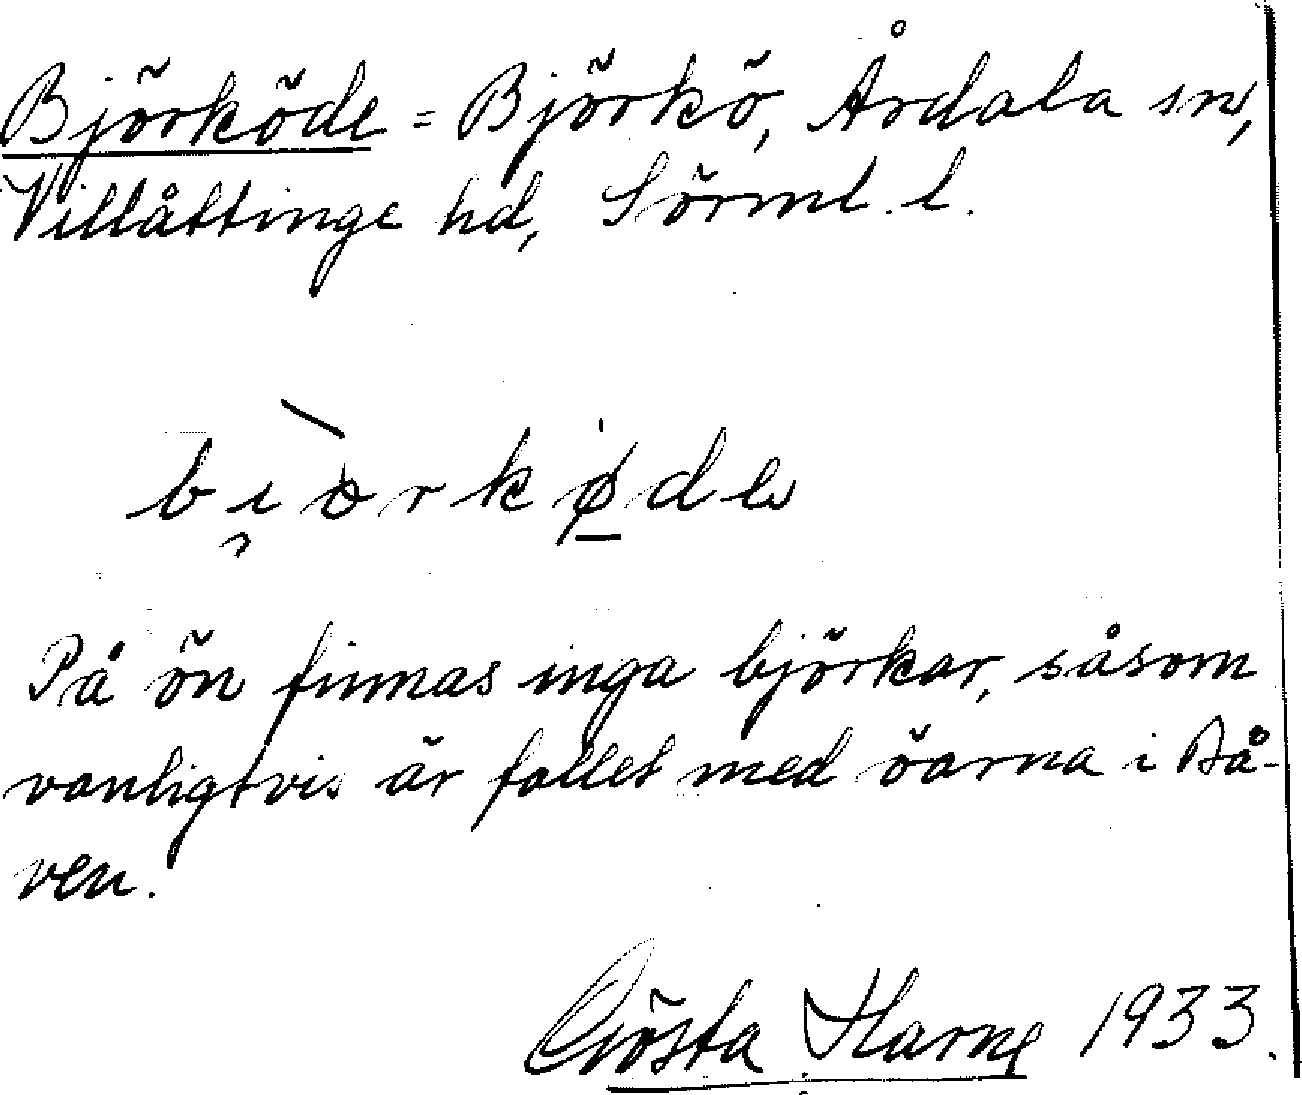 Björköde = Björkö, Årdala sn,
Villåttinge hd, Sörml. l.
bi̯òrkø̱de
På ön finnas inga björkar, såsom
vanligtvis är fallet med öarna i Bå-
ven.
Gösta Harne 1933.